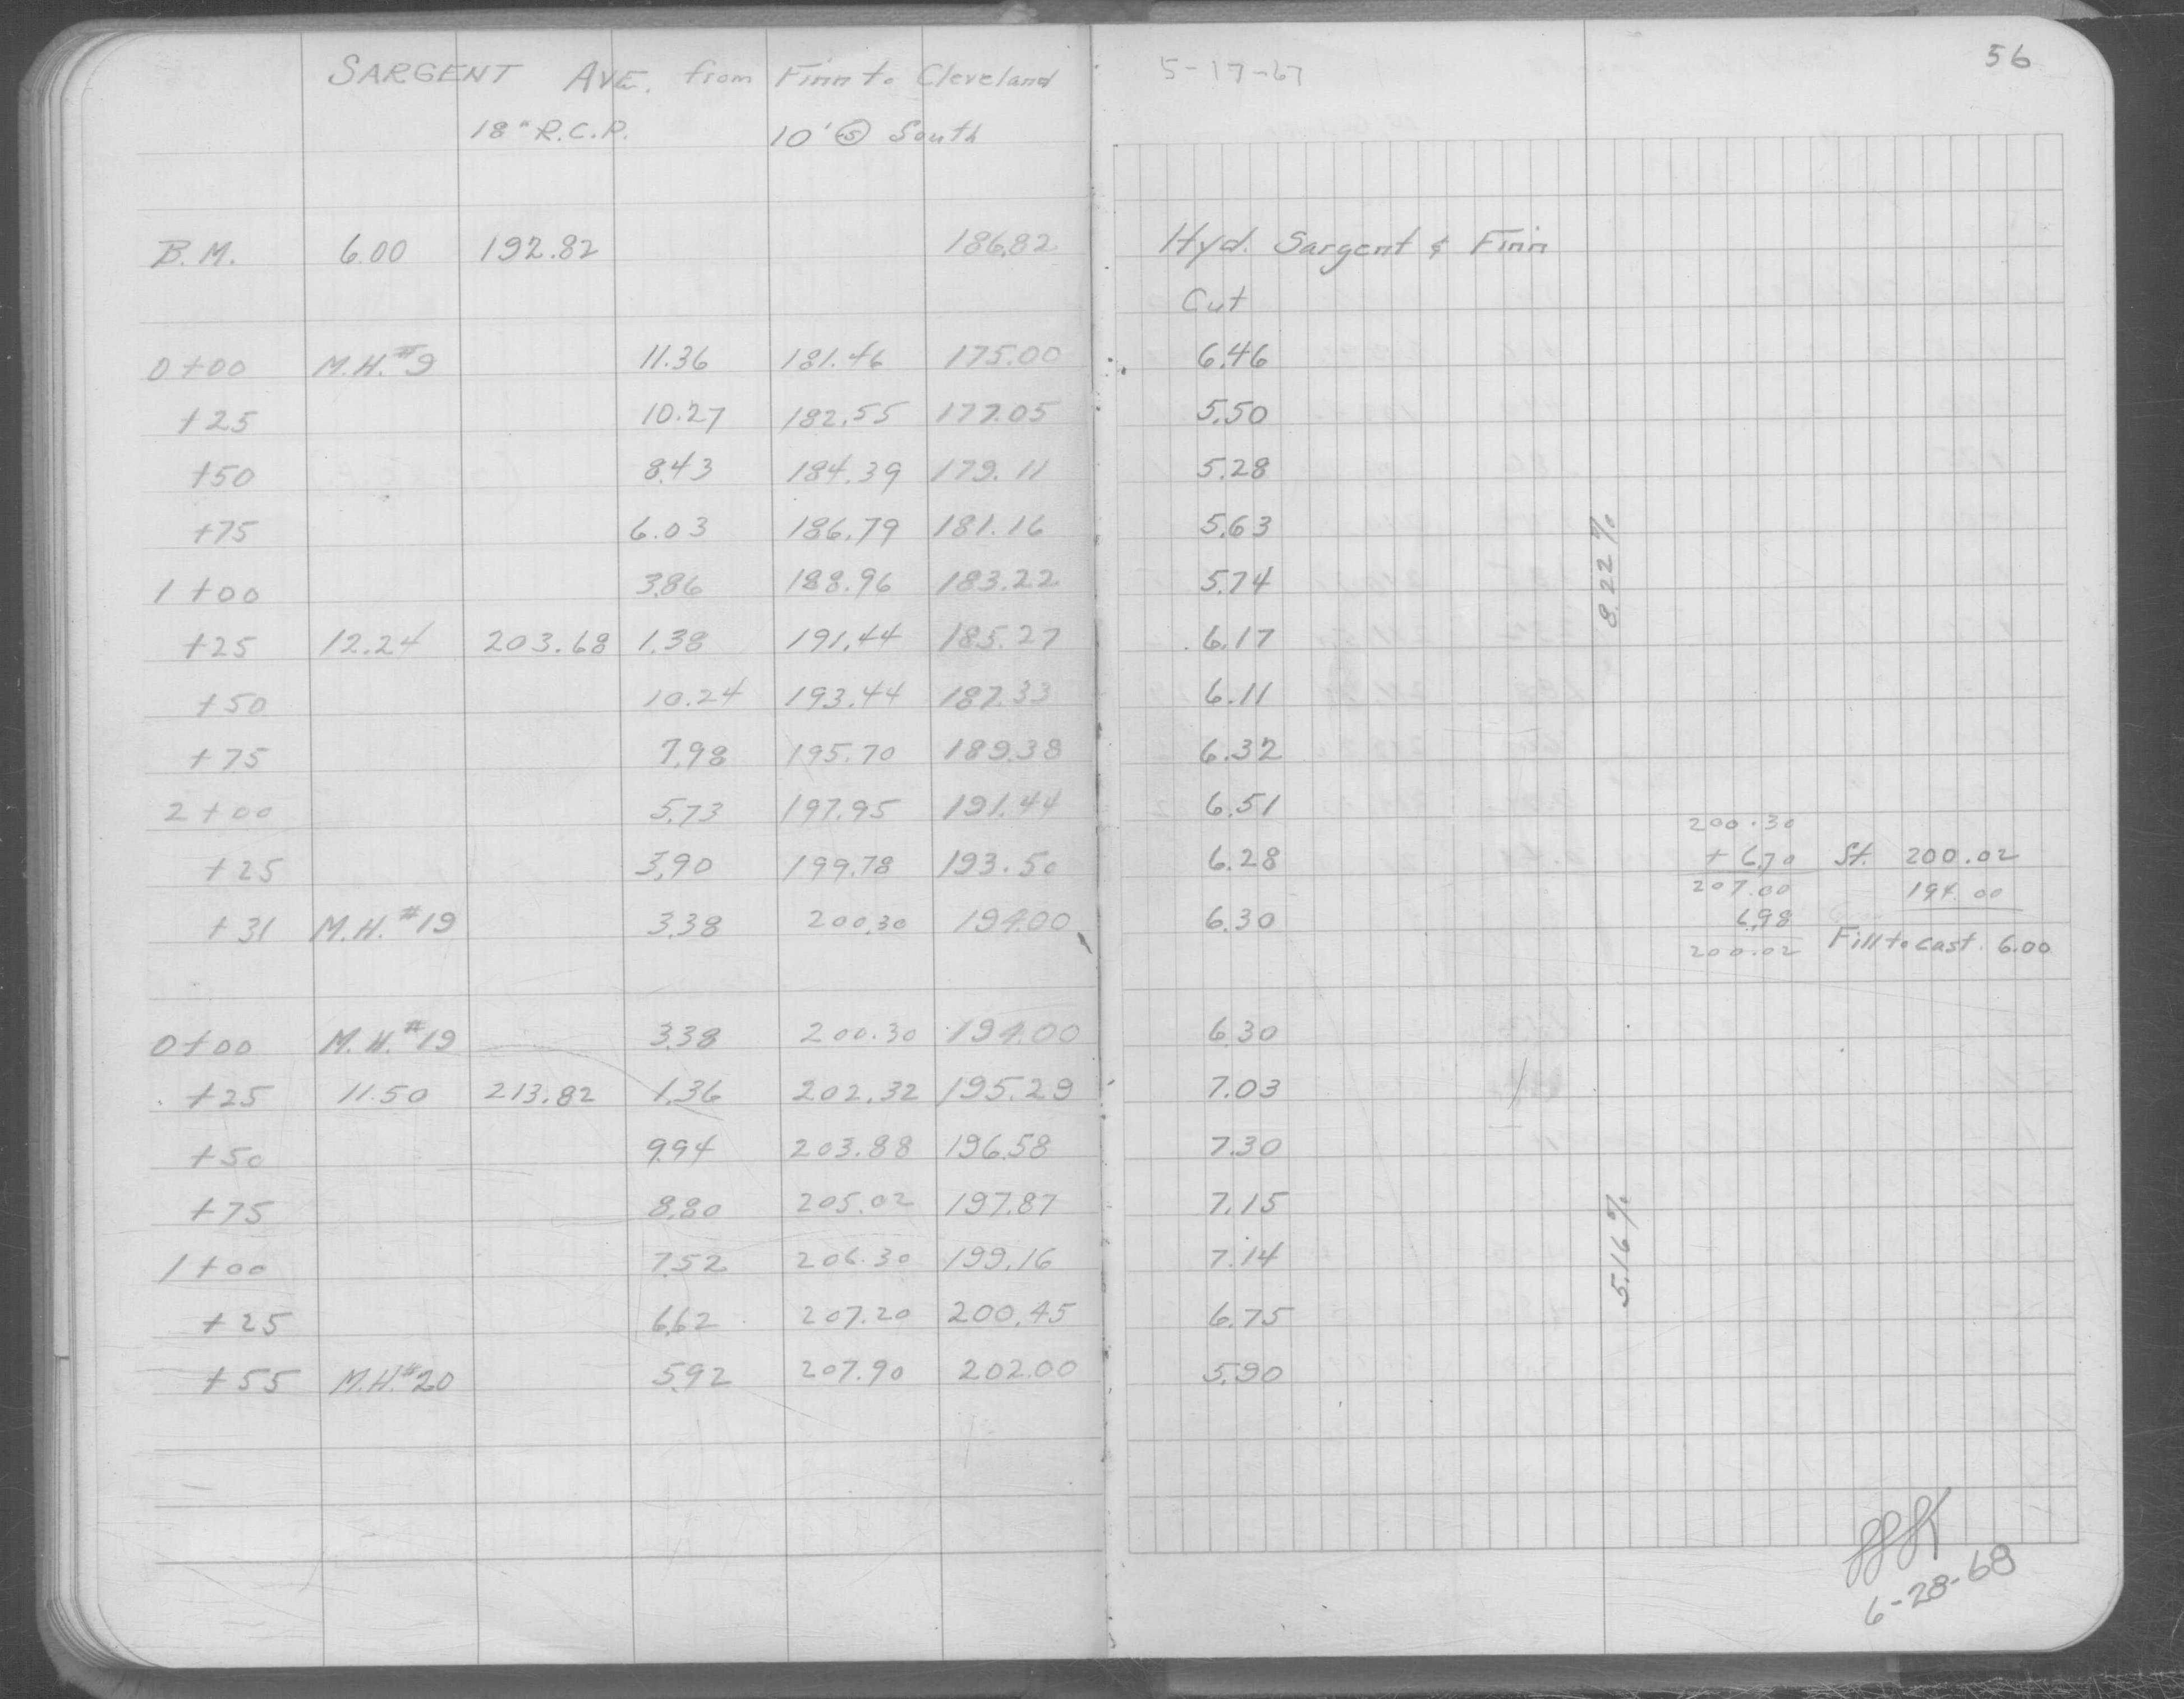 SARGENT AVE. from Finn to Cleveland 5-17-67 56
18" R.C.P. 10' Ⓢ South
B.M. 6.00 192.82 186.82 Hyd. Sargent & Finn
Cut
0+00 M.H.#9 11.36 181.46 175.00 6.46
+25 10.27 182.55 177.05 5.50
+50 8.43 184.39 179.11 5.28
+75 6.03 186.79 181.16 5.63
1+00 3.86 188.96 183.22 5.74
+25 12.24 203.68 1.38 191.44 185.27 6.17
+50 10.24 193.44 187.33 6.11
+75 7.98 195.70 189.38 6.32
2+00 5.73 197.95 191.44 6.51
+25 3.90 199.78 193.50 6.28
+31 M.H.#19 3.38 200.30 194.00 6.30
8.22%
200.30
+ 6.70 St. 200.02
207.00 194.00
6.98
200.02 Fill to cast. 6.00
0+00 M.H.#19 3.38 200.30 194.00 6.30
+25 11.50 213.82 1.36 202.32 195.29 7.03
+50 9.94 203.88 196.58 7.30
+75 8.80 205.02 197.87 7.15
1+00 7.52 206.30 199.16 7.14
+25 6.62 207.20 200.45 6.75
+55 M.H.#20 5.92 207.90 202.00 5.90
5.16%
6-28-68